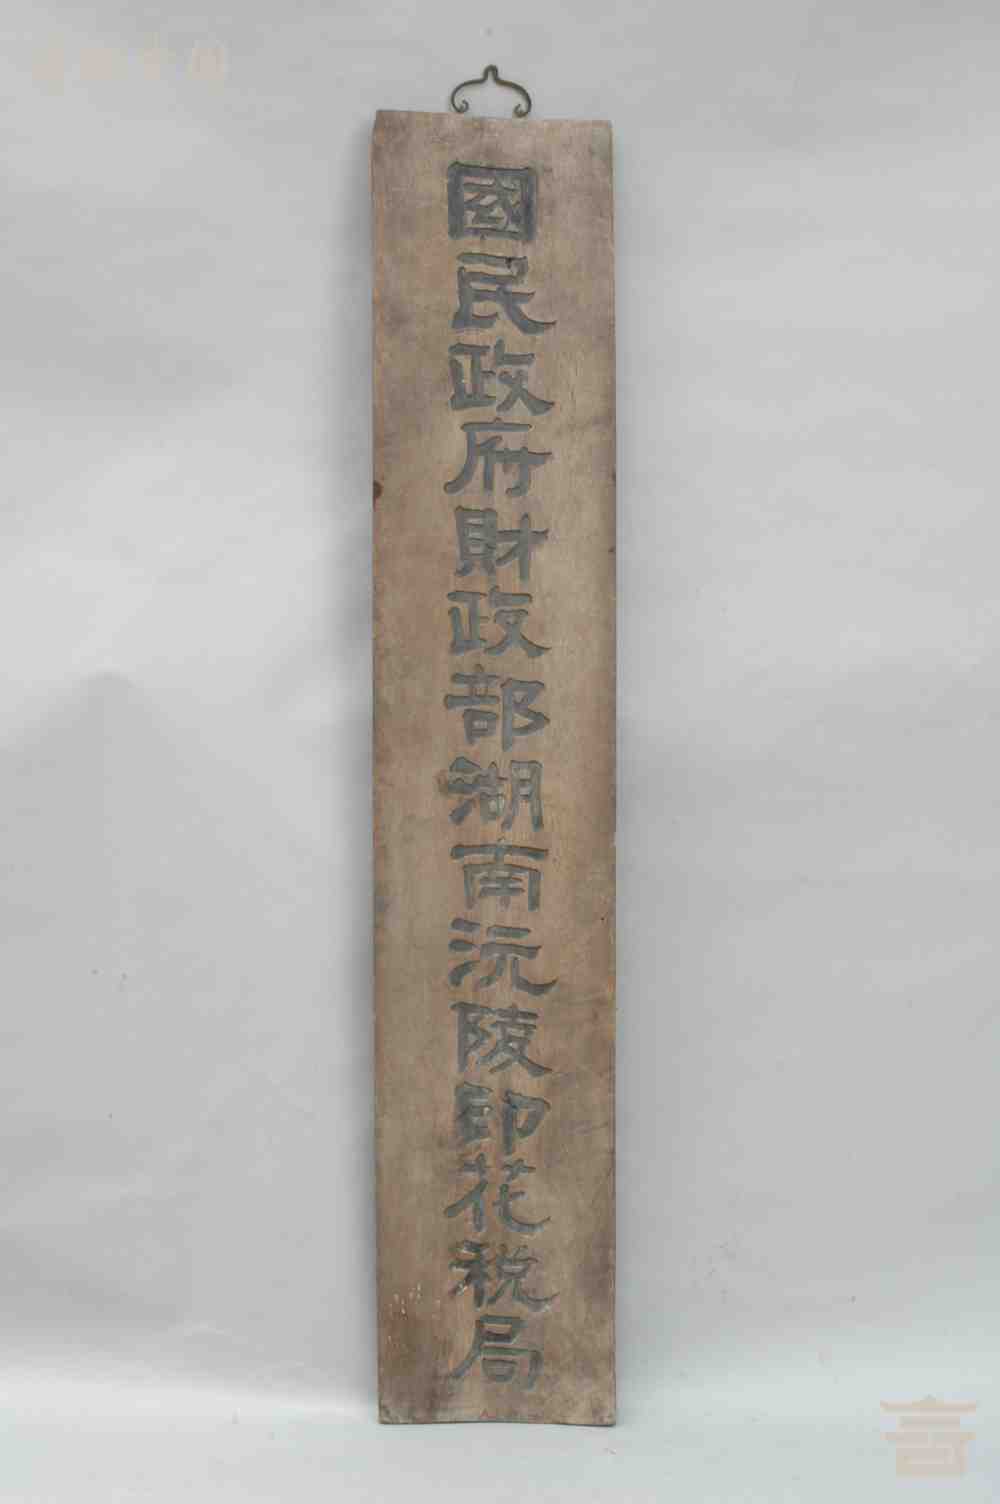 國民政府財政部湖南沅陵印花稅局